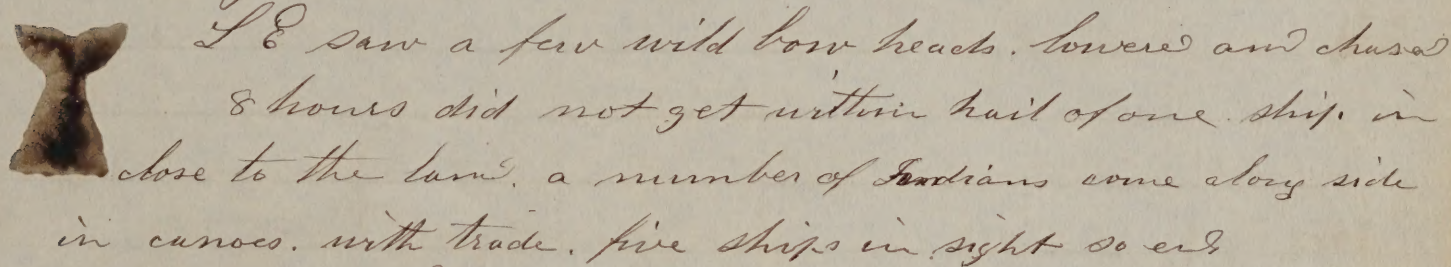 S E saw a few wild bow heads. lowered and chased
8 hours did not get within hail of one. ship in
close to the land. a number of Indians come along side
in canoes. with trade. five ships in sight so ends